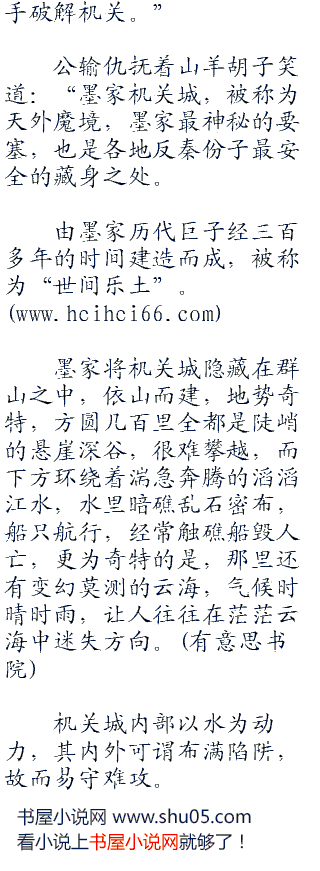 手破解机关。”
公输仇抚着山羊胡子笑
道：“墨家机关城，被称为
天外魔境，墨家最神秘的要
塞，也是各地反秦份子最安
全的藏身之处。
由墨家历代巨子经三百
多年的时间建造而成，被称
为“世间乐土”。
(www.hcihci66.com)
墨家将机关城隐藏在群
山之中，依山而建，地势奇
特，方圆几百里全都是陡峭
的悬崖深谷，很难攀越，而
下方环绕着湍急奔腾的滔滔
江水，水里暗礁乱石密布，
船只航行，经常触礁船毁人
亡，更为奇特的是，那里还
有变幻莫测的云海，气候时
晴时雨，让人往往在茫茫云
海中迷失方向。(有意思书
院)
机关城内部以水为动
力，其内外可谓布满陷阱，
故而易守难攻。
书屋小说网 www.shu05.com
看小说上书屋小说网就够了！